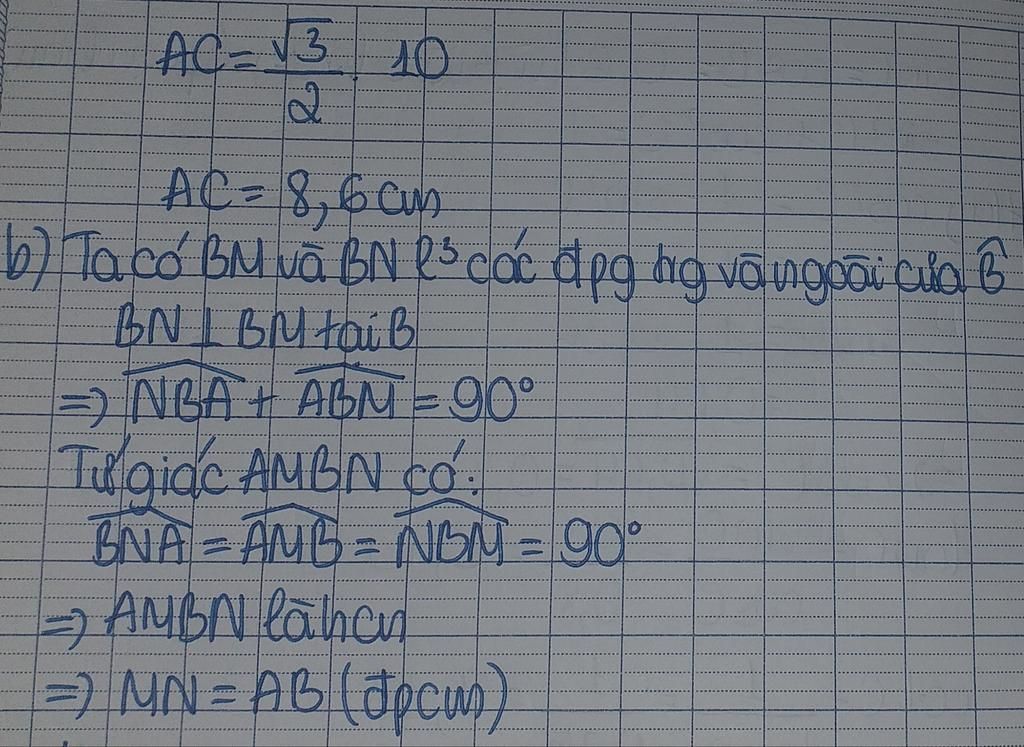 AC = √3/2 . 10
AC = 8,6 cm
b) Ta có BM và BN là các đpg trg và ngoài của B̂
BN ⊥ BM tại B
=> \widehat{NBA} + \widehat{ABM} = 90°
Tứ giác AMBN có:
\widehat{BNA} = \widehat{AMB} = \widehat{NBM} = 90°
=> AMBN là hcn
=> MN = AB (đpcm)